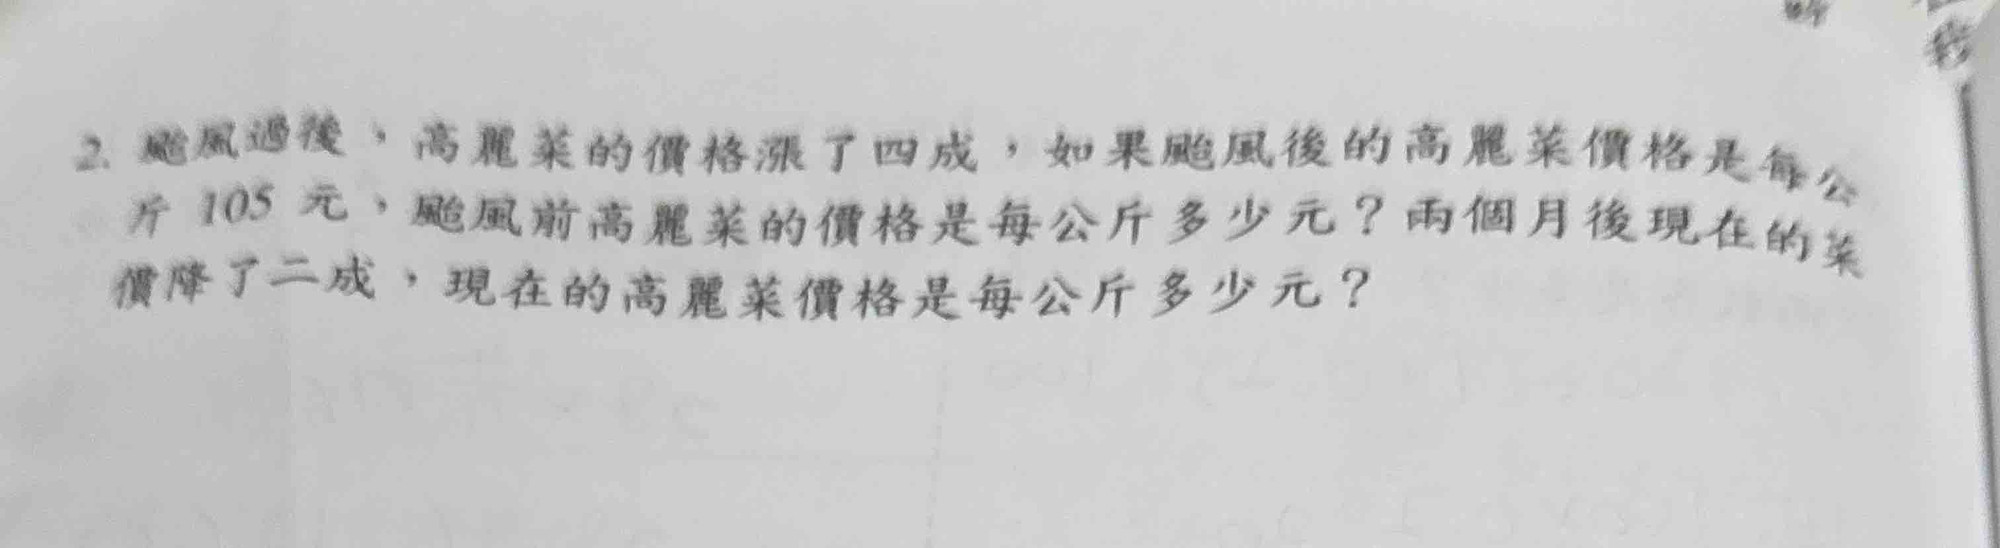 2. 颱風過後，高麗菜的價格漲了四成，如果颱風後的高麗菜價格是每公
斤 105 元，颱風前高麗菜的價格是每公斤多少元？兩個月後現在的菜
價降了二成，現在的高麗菜價格是每公斤多少元？